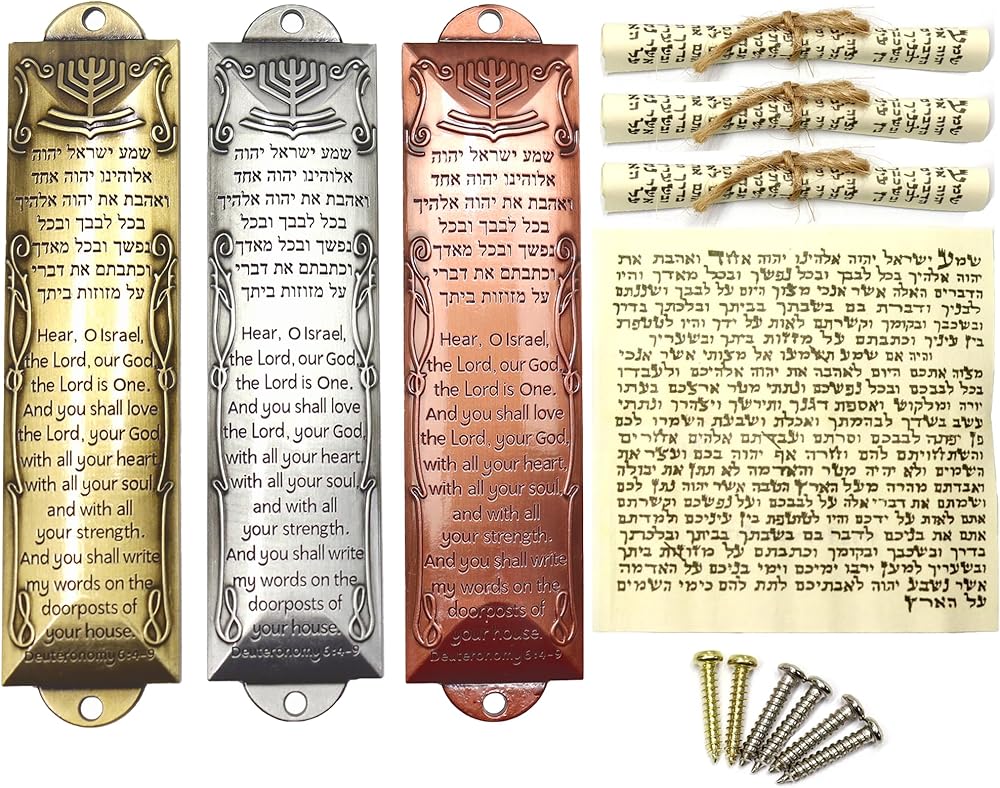 שמע ישראל יהוה
אלוהינו יהוה אחד
ואהבת את יהוה אלהיך
בכל לבבך ובכל
נפשך ובכל מאדך
וכתבתם את דברי
על מזוזות ביתך
Hear, O Israel,
the Lord, our God,
the Lord is One.
And you shall love
the Lord, your God,
with all your heart,
with all your soul,
and with all
your strength.
And you shall write
my words on the
doorposts of
your house.
Deuteronomy 6:4-9
שמע ישראל יהוה
אלוהינו יהוה אחד
ואהבת את יהוה אלהיך
בכל לבבך ובכל
נפשך ובכל מאדך
וכתבתם את דברי
על מזוזות ביתך
Hear, O Israel,
the Lord, our God,
the Lord is One.
And you shall love
the Lord, your God,
with all your heart,
with all your soul,
and with all
your strength.
And you shall write
my words on the
doorposts of
your house.
Deuteronomy 6:4-9
שמע ישראל יהוה
אלוהינו יהוה אחד
ואהבת את יהוה אלהיך
בכל לבבך ובכל
נפשך ובכל מאדך
וכתבתם את דברי
על מזוזות ביתך
Hear, O Israel,
the Lord, our God,
the Lord is One.
And you shall love
the Lord, your God,
with all your heart,
with all your soul,
and with all
your strength.
And you shall write
my words on the
doorposts of
your house.
Deuteronomy 6:4-9
שמע ישראל יהוה אלהינו יהוה אחד ואהבת את
יהוה אלהיך בכל לבבך ובכל נפשך ובכל מאדך והיו
הדברים האלה אשר אנכי מצוך היום על לבבך ושננתם
לבניך ודברת בם בשבתך בביתך ובלכתך בדרך
ובשכבך ובקומך וקשרתם לאות על ידך והיו לטטפת
בין עיניך וכתבתם על מזוזות ביתך ובשעריך
והיה אם שמע תשמעו אל מצותי אשר אנכי
מצוה אתכם היום לאהבה את יהוה אלהיכם ולעבדו
בכל לבבכם ובכל נפשכם ונתתי מטר ארצכם בעתו
יורה ומלקוש ואספת דגנך ותירשך ויצהרך ונתתי
עשב בשדך לבהמתך ואכלת ושבעת השמרו לכם
פן יפתה לבבכם וסרתם ועבדתם אלהים אחרים
והשתחויתם להם וחרה אף יהוה בכם ועצר את
השמים ולא יהיה מטר והאדמה לא תתן את יבולה
ואבדתם מהרה מעל הארץ הטבה אשר יהוה נתן לכם
ושמתם את דברי אלה על לבבכם ועל נפשכם וקשרתם
אתם לאות על ידכם והיו לטוטפת בין עיניכם ולמדתם
אתם את בניכם לדבר בם בשבתך בביתך ובלכתך
בדרך ובשכבך ובקומך וכתבתם על מזוזות ביתך
ובשעריך למען ירבו ימיכם וימי בניכם על האדמה
אשר נשבע יהוה לאבתיכם לתת להם כימי השמים
על הארץ